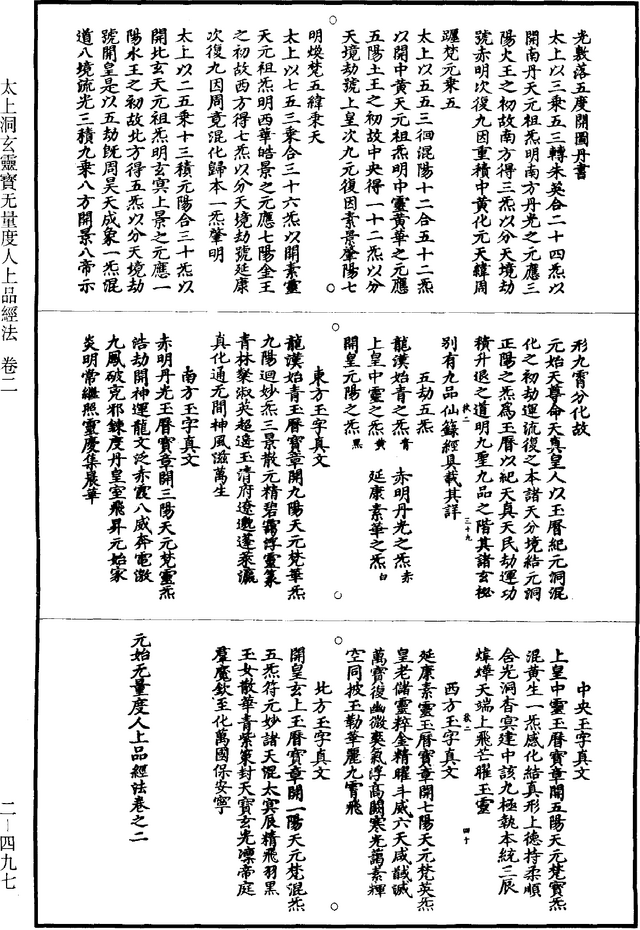 太上洞玄靈寶无量度人上品經法　卷二
二—四九七
光數落五度開圖丹書
太上以三乘五三轉朱英合二十四炁以
開南丹天元祖炁明南方丹光之元應三
陽火王之初故南方得三炁以分天境劫
號赤明次復九因重積中黃化元天緯周
躔梵元乘五
太上以五五三徊混陽十二合五十二炁
以開中黃天元祖炁明中靈黃華之元應
五陽土王之初故中央得一十二炁以分
天境劫號上皇次九元復因素景肇陽七
明煥梵五緯乘天
太上以七五三乘合三十六炁以開素靈
天元祖炁明西華皓景之元應七陽金王
之初故西方得七炁以分天境劫號延康
次復九因周竟混化歸本一炁肇明
太上以二五乘十三積元陽合三十炁以
開北玄天元祖炁明玄冥上景之元應一
陽水王之初故北方得五炁以分天境劫
號開皇是以五劫既周昊天成象一炁混
道八境流光三積九乘八方開景八帝示
形九霄分化故
元始天尊命天真皇人以玉曆紀元洞混
化之初劫運流復之本諸天分境結元洞
正陽之炁為玉曆以紀天真天民劫運功
積升退之道明九聖九品之階其諸玄秘
別有九品仙籙經具載其詳
五劫五炁
龍漢始青之炁青　赤明丹光之炁赤
上皇中靈之炁黃　延康素華之炁白
開皇元陽之炁黑
東方玉字真文
龍漢始青玉曆寶章開九陽天元梵華炁
九陽迴妙炁三景散元精碧靄浮靈篆
青林粲淑英超遙玉清府遼邈蓬萊瀛
真化通元間神風滋萬生
南方玉字真文
赤明丹光玉曆寶章開三陽天元梵靈炁
浩劫開神運龍文泛赤霞八威奔電激
九鳳破兇邪鍊度丹皇室飛昇元始家
炎明常繼照靈慶集晨華
中央玉字真文
上皇中靈玉曆寶章開五陽天元梵寶炁
混黃生一炁感化結真形上德持柔順
含光洞杳冥建中該九極執本統三辰
煒燁天端上飛芒曜玉靈
西方玉字真文
延康素靈玉曆寶章開七陽天元梵英炁
皇老儲靈粹金精曜斗威六天咸馘滅
萬寶復幽微爽氣浮高闕寒光藹素輝
空同披玉勒華麗九霄飛
北方玉字真文
開皇玄上玉曆寶章開一陽天元梵混炁
五炁符元妙諸天混太冥辰精飛羽黑
玉女散華青紫策封天寶玄光凜帝庭
羣魔欽至化萬國保安寧
元始无量度人上品經法卷之二